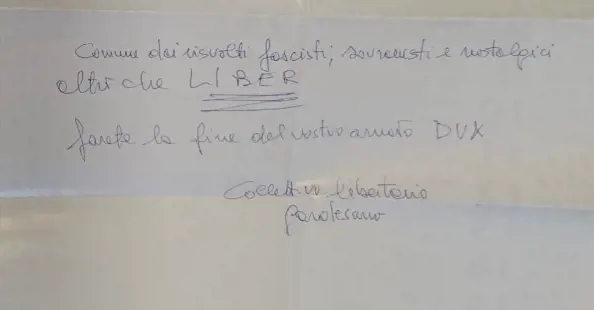 Comune dai risvolti fascisti, sovranisti e nostalgici
altro che LIBER
farete la fine del vostro amato DVX
Collettivo libertario
parolesano